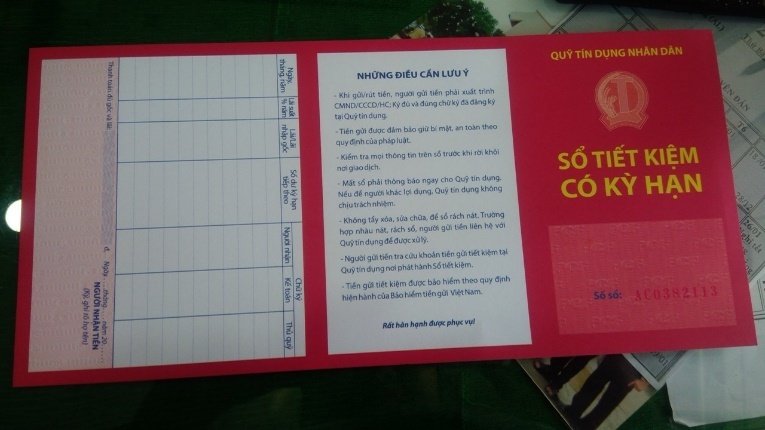 QUỸ TÍN DỤNG NHÂN DÂN
SỔ TIẾT KIỆM
CÓ KỲ HẠN
Số sổ: AC0382113
NHỮNG ĐIỀU CẦN LƯU Ý
- Khi gửi/rút tiền, người gửi tiền phải xuất trình
CMND/CCCD/HC; Ký đủ và đúng chữ ký đã đăng ký
tại Quỹ tín dụng.
- Tiền gửi được đảm bảo giữ bí mật, an toàn theo
quy định của pháp luật.
- Kiểm tra mọi thông tin trên sổ trước khi rời khỏi
nơi giao dịch.
- Mất sổ phải thông báo ngay cho Quỹ tín dụng.
Nếu để người khác lợi dụng, Quỹ tín dụng không
chịu trách nhiệm.
- Không tẩy xóa, sửa chữa, để sổ rách nát. Trường
hợp nhàu nát, rách sổ, người gửi tiền liên hệ với
Quỹ tín dụng để được xử lý.
- Người gửi tiền tra cứu khoản tiền gửi tiết kiệm tại
Quỹ tín dụng nơi phát hành Sổ tiết kiệm.
- Tiền gửi tiết kiệm được bảo hiểm theo quy định
hiện hành của Bảo hiểm tiền gửi Việt Nam.
Rất hân hạnh được phục vụ!
Ngày,
tháng, năm
Lãi suất
% năm
Lãi/Lãi
nhập gốc
Số dư kỳ hạn
tiếp theo
Chữ ký
Người nhận
Kế toán
Thủ quỹ
Thanh toán đủ gốc và lãi:
đ.
Ngày ... tháng ... năm 20.....
NGƯỜI NHẬN TIỀN
(Ký, ghi rõ họ tên)